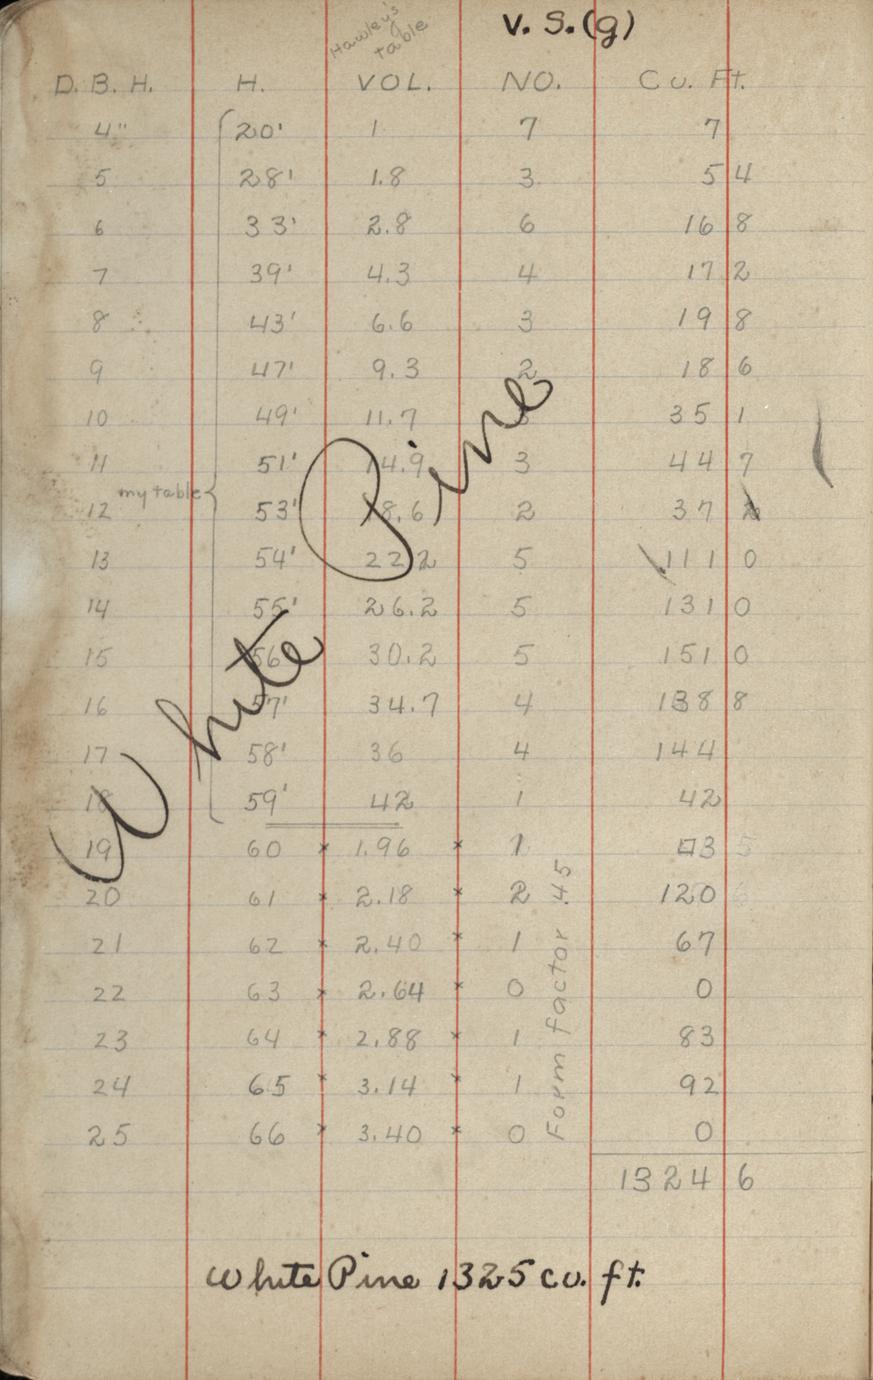 Hawley's table
V. S.(g)
D. B. H. H. VOL. NO. Cu. Ft.
4" 20' 1 7 7
5 28' 1.8 3 5 4
6 33' 2.8 6 16 8
7 39' 4.3 4 17 2
8 43' 6.6 3 19 8
9 47' 9.3 2 18 6
10 49' 11.7 3 35 1
11 51' 14.9 3 44 7
my table
12 53' 18.6 2 37 2
13 54' 22.2 5 111 0
14 55' 26.2 5 131 0
15 56' 30.2 5 151 0
16 57' 34.7 4 138 8
17 58' 36 4 144
18 59' 42 1 42
19 60 × 1.96 × 1 3
20 61 × 2.18 × 2 120
21 62 × 2.40 × 1 67
22 63 × 2.64 × 0 0
23 64 × 2.88 × 1 83
24 65 × 3.14 × 1 92
25 66 × 3.40 × 0 0
Form factor .45
1324 6
White Pine
White Pine 1325 cu. ft.